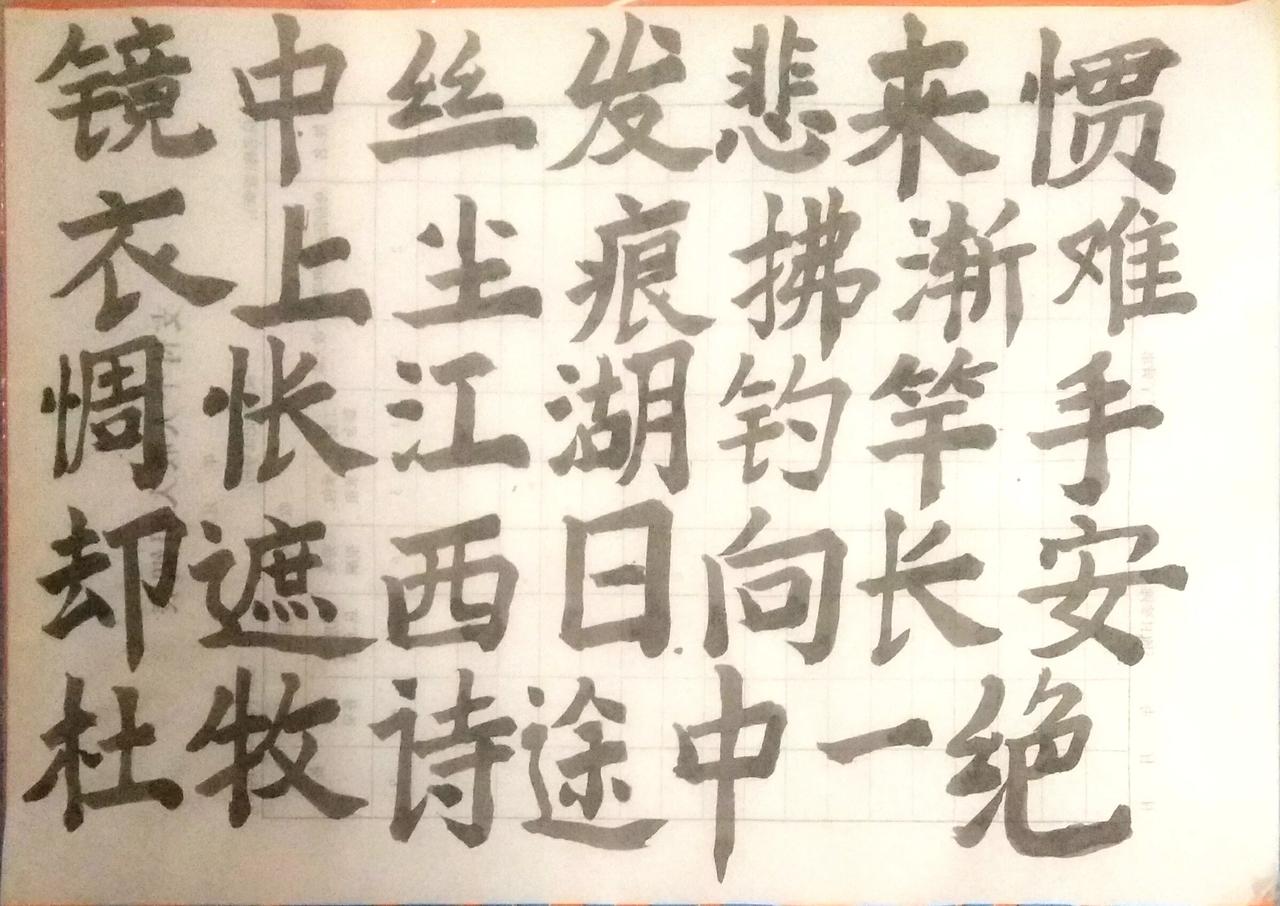 镜中丝发悲来惯
衣上尘痕拂渐难
惆怅江湖钓竿手
却遮西日向长安
杜牧诗途中一绝